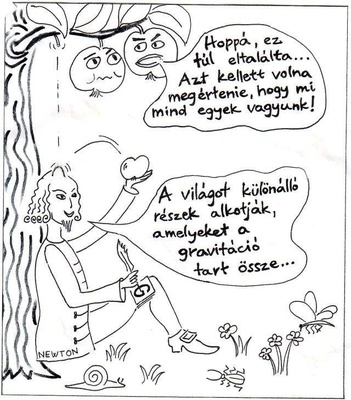 Hoppá, ez
túl eltalálta...
Azt kellett volna
megértenie, hogy mi
mind egyek vagyunk!
A világot különálló
részek alkotják,
amelyeket a
gravitáció
tart össze...
G
NEWTON